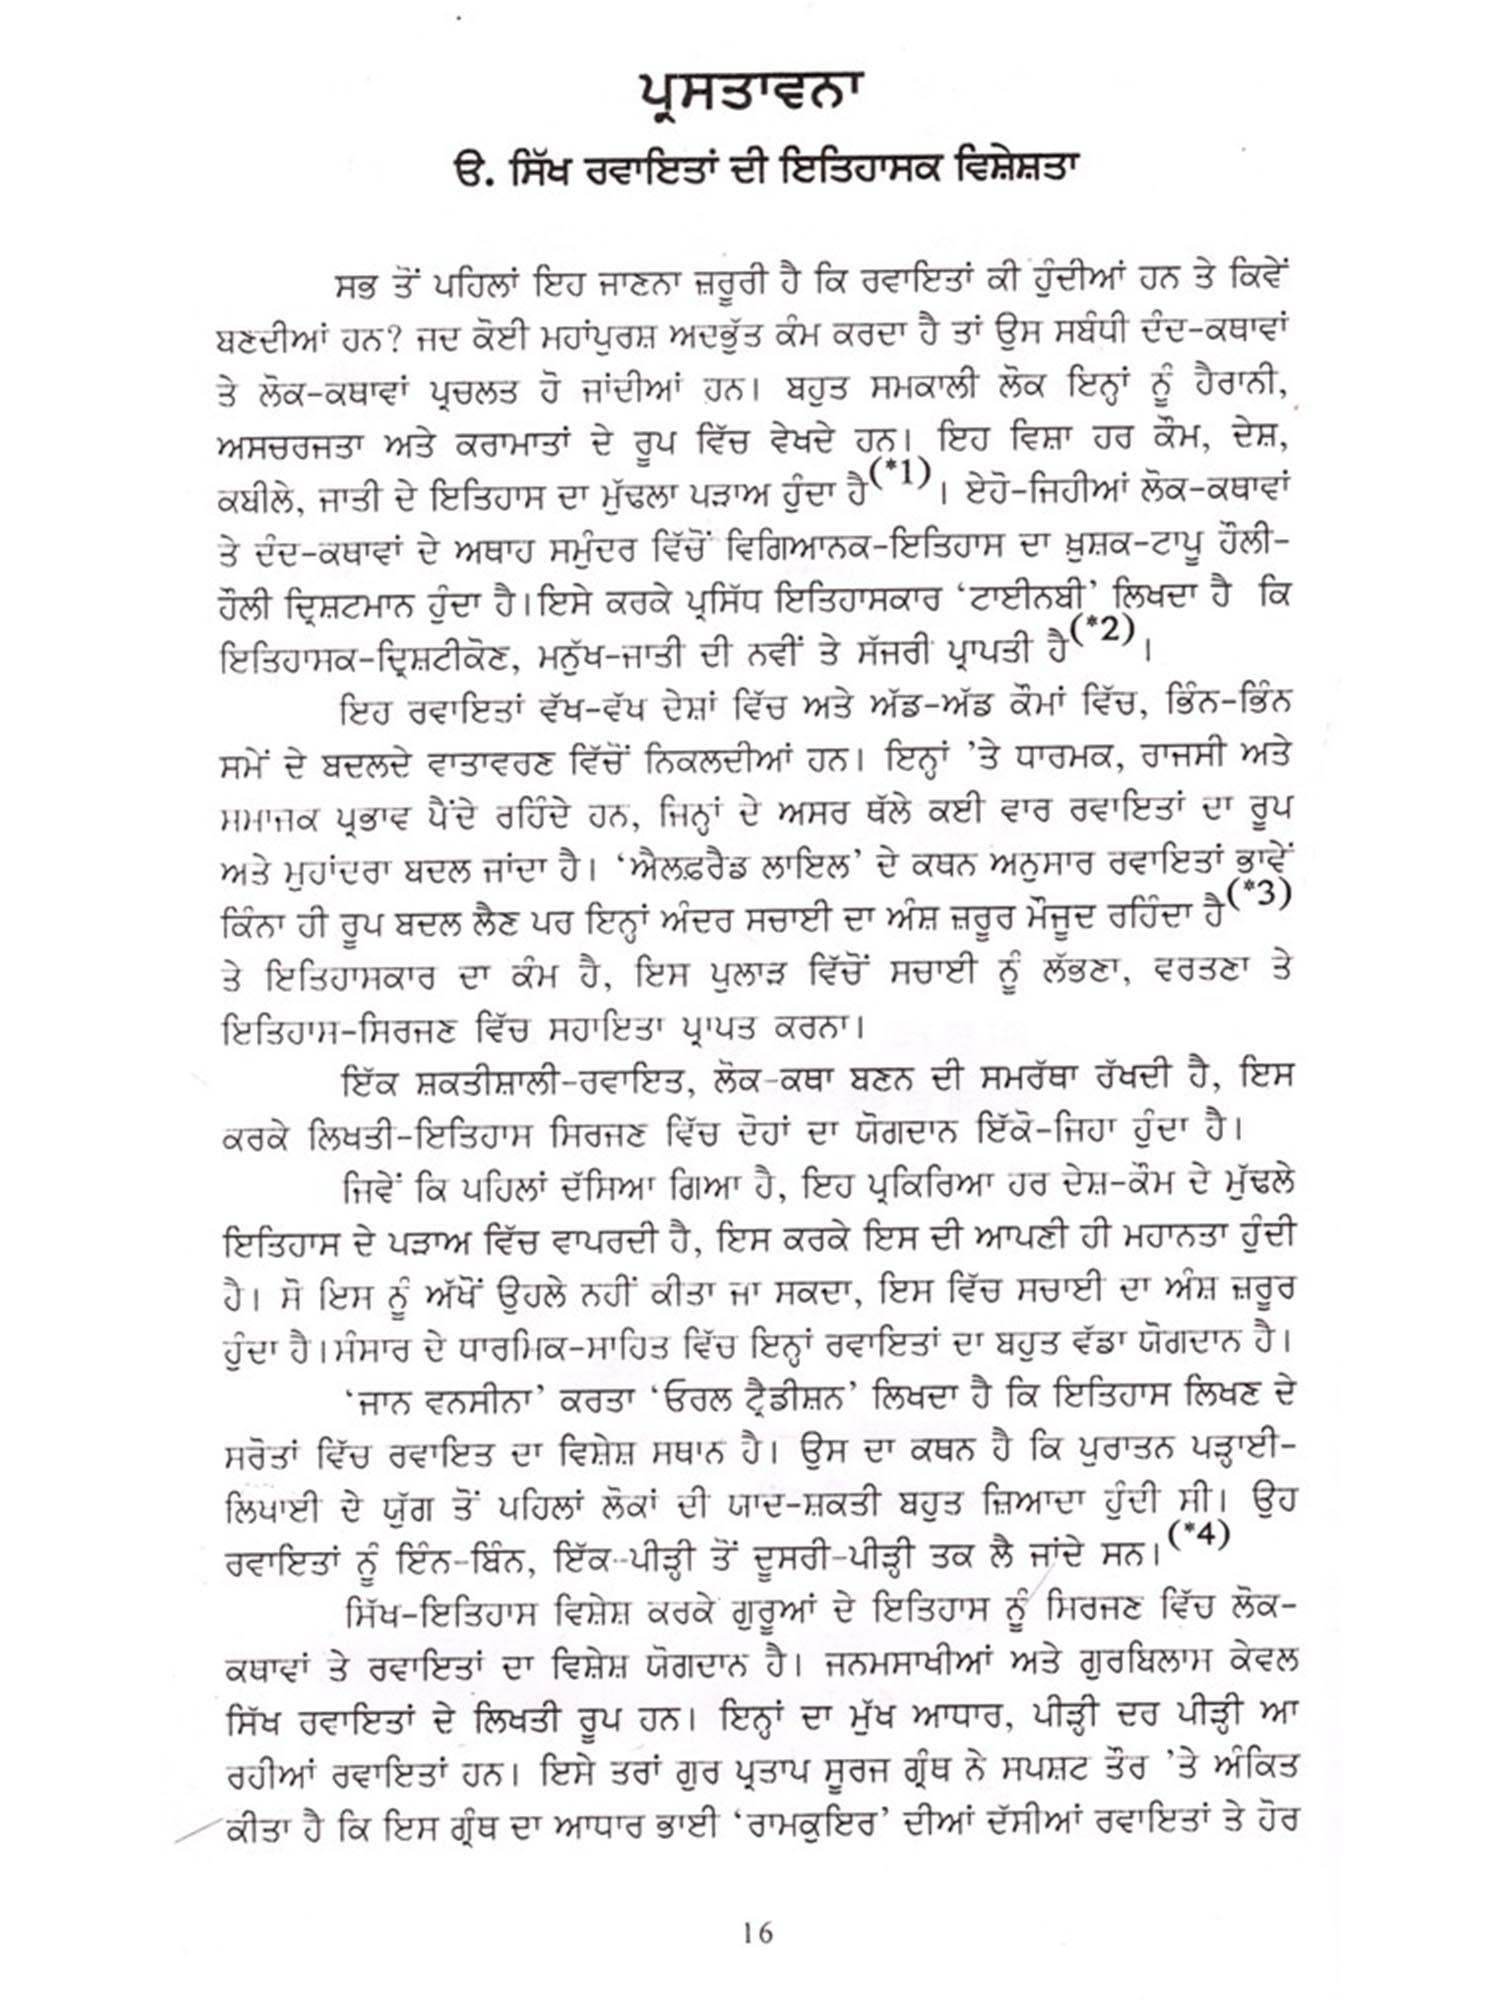 ਪ੍ਰਸਤਾਵਨਾ
ੳ. ਸਿੱਖ ਰਵਾਇਤਾਂ ਦੀ ਇਤਿਹਾਸਕ ਵਿਸ਼ੇਸ਼ਤਾ
ਸਭ ਤੋਂ ਪਹਿਲਾਂ ਇਹ ਜਾਣਨਾ ਜ਼ਰੂਰੀ ਹੈ ਕਿ ਰਵਾਇਤਾਂ ਕੀ ਹੁੰਦੀਆਂ ਹਨ ਤੇ ਕਿਵੇਂ
ਬਣਦੀਆਂ ਹਨ? ਜਦ ਕੋਈ ਮਹਾਂਪੁਰਸ਼ ਅਦਭੁੱਤ ਕੰਮ ਕਰਦਾ ਹੈ ਤਾਂ ਉਸ ਸਬੰਧੀ ਦੰਦ-ਕਥਾਵਾਂ
ਤੇ ਲੋਕ-ਕਥਾਵਾਂ ਪ੍ਰਚਲਤ ਹੋ ਜਾਂਦੀਆਂ ਹਨ। ਬਹੁਤ ਸਮਕਾਲੀ ਲੋਕ ਇਨ੍ਹਾਂ ਨੂੰ ਹੈਰਾਨੀ,
ਅਸਚਰਜਤਾ ਅਤੇ ਕਰਾਮਾਤਾਂ ਦੇ ਰੂਪ ਵਿੱਚ ਵੇਖਦੇ ਹਨ। ਇਹ ਵਿਸ਼ਾ ਹਰ ਕੌਮ, ਦੇਸ਼,
ਕਬੀਲੇ, ਜਾਤੀ ਦੇ ਇਤਿਹਾਸ ਦਾ ਮੁੱਢਲਾ ਪੜਾਅ ਹੁੰਦਾ ਹੈ(*1)। ਏਹੋ-ਜਿਹੀਆਂ ਲੋਕ-ਕਥਾਵਾਂ
ਤੇ ਦੰਦ-ਕਥਾਵਾਂ ਦੇ ਅਥਾਹ ਸਮੁੰਦਰ ਵਿੱਚੋਂ ਵਿਗਿਆਨਕ-ਇਤਿਹਾਸ ਦਾ ਖ਼ੁਸ਼ਕ-ਟਾਪੂ ਹੌਲੀ-
ਹੌਲੀ ਦ੍ਰਿਸ਼ਟਮਾਨ ਹੁੰਦਾ ਹੈ। ਇਸੇ ਕਰਕੇ ਪ੍ਰਸਿੱਧ ਇਤਿਹਾਸਕਾਰ ‘ਟਾਈਨਬੀ’ ਲਿਖਦਾ ਹੈ ਕਿ
ਇਤਿਹਾਸਕ-ਦ੍ਰਿਸ਼ਟੀਕੋਣ, ਮਨੁੱਖ-ਜਾਤੀ ਦੀ ਨਵੀਂ ਤੇ ਸੱਜਰੀ ਪ੍ਰਾਪਤੀ ਹੈ(*2)।
ਇਹ ਰਵਾਇਤਾਂ ਵੱਖ-ਵੱਖ ਦੇਸ਼ਾਂ ਵਿੱਚ ਅਤੇ ਅੱਡ-ਅੱਡ ਕੌਮਾਂ ਵਿੱਚ, ਭਿੰਨ-ਭਿੰਨ
ਸਮੇਂ ਦੇ ਬਦਲਦੇ ਵਾਤਾਵਰਣ ਵਿੱਚੋਂ ਨਿਕਲਦੀਆਂ ਹਨ। ਇਨ੍ਹਾਂ ’ਤੇ ਧਾਰਮਕ, ਰਾਜਸੀ ਅਤੇ
ਸਮਾਜਕ ਪ੍ਰਭਾਵ ਪੈਂਦੇ ਰਹਿੰਦੇ ਹਨ, ਜਿਨ੍ਹਾਂ ਦੇ ਅਸਰ ਥੱਲੇ ਕਈ ਵਾਰ ਰਵਾਇਤਾਂ ਦਾ ਰੂਪ
ਅਤੇ ਮੁਹਾਂਦਰਾ ਬਦਲ ਜਾਂਦਾ ਹੈ। ‘ਐਲਫ਼ਰੈਡ ਲਾਇਲ’ ਦੇ ਕਥਨ ਅਨੁਸਾਰ ਰਵਾਇਤਾਂ ਭਾਵੇਂ
ਕਿੰਨਾ ਹੀ ਰੂਪ ਬਦਲ ਲੈਣ ਪਰ ਇਨ੍ਹਾਂ ਅੰਦਰ ਸਚਾਈ ਦਾ ਅੰਸ਼ ਜ਼ਰੂਰ ਮੌਜੂਦ ਰਹਿੰਦਾ ਹੈ(*3)
ਤੇ ਇਤਿਹਾਸਕਾਰ ਦਾ ਕੰਮ ਹੈ, ਇਸ ਪੁਲਾੜ ਵਿੱਚੋਂ ਸਚਾਈ ਨੂੰ ਲੱਭਣਾ, ਵਰਤਣਾ ਤੇ
ਇਤਿਹਾਸ-ਸਿਰਜਣ ਵਿੱਚ ਸਹਾਇਤਾ ਪ੍ਰਾਪਤ ਕਰਨਾ।
ਇੱਕ ਸ਼ਕਤੀਸ਼ਾਲੀ-ਰਵਾਇਤ, ਲੋਕ-ਕਥਾ ਬਣਨ ਦੀ ਸਮਰੱਥਾ ਰੱਖਦੀ ਹੈ, ਇਸ
ਕਰਕੇ ਲਿਖਤੀ-ਇਤਿਹਾਸ ਸਿਰਜਣ ਵਿੱਚ ਦੋਹਾਂ ਦਾ ਯੋਗਦਾਨ ਇੱਕੋ-ਜਿਹਾ ਹੁੰਦਾ ਹੈ।
ਜਿਵੇਂ ਕਿ ਪਹਿਲਾਂ ਦੱਸਿਆ ਗਿਆ ਹੈ, ਇਹ ਪ੍ਰਕਿਰਿਆ ਹਰ ਦੇਸ਼-ਕੌਮ ਦੇ ਮੁੱਢਲੇ
ਇਤਿਹਾਸ ਦੇ ਪੜਾਅ ਵਿੱਚ ਵਾਪਰਦੀ ਹੈ, ਇਸ ਕਰਕੇ ਇਸ ਦੀ ਆਪਣੀ ਹੀ ਮਹਾਨਤਾ ਹੁੰਦੀ
ਹੈ। ਸੋ ਇਸ ਨੂੰ ਅੱਖੋਂ ਉਹਲੇ ਨਹੀਂ ਕੀਤਾ ਜਾ ਸਕਦਾ, ਇਸ ਵਿੱਚ ਸਚਾਈ ਦਾ ਅੰਸ਼ ਜ਼ਰੂਰ
ਹੁੰਦਾ ਹੈ। ਸੰਸਾਰ ਦੇ ਧਾਰਮਿਕ-ਸਾਹਿਤ ਵਿੱਚ ਇਨ੍ਹਾਂ ਰਵਾਇਤਾਂ ਦਾ ਬਹੁਤ ਵੱਡਾ ਯੋਗਦਾਨ ਹੈ।
‘ਜਾਨ ਵਨਸੀਨਾ’ ਕਰਤਾ ‘ਓਰਲ ਟ੍ਰੈਡੀਸ਼ਨ’ ਲਿਖਦਾ ਹੈ ਕਿ ਇਤਿਹਾਸ ਲਿਖਣ ਦੇ
ਸਰੋਤਾਂ ਵਿੱਚ ਰਵਾਇਤ ਦਾ ਵਿਸ਼ੇਸ਼ ਸਥਾਨ ਹੈ। ਉਸ ਦਾ ਕਥਨ ਹੈ ਕਿ ਪੁਰਾਤਨ ਪੜ੍ਹਾਈ-
ਲਿਖਾਈ ਦੇ ਯੁੱਗ ਤੋਂ ਪਹਿਲਾਂ ਲੋਕਾਂ ਦੀ ਯਾਦ-ਸ਼ਕਤੀ ਬਹੁਤ ਜ਼ਿਆਦਾ ਹੁੰਦੀ ਸੀ। ਉਹ
ਰਵਾਇਤਾਂ ਨੂੰ ਇੰਨ-ਬਿੰਨ, ਇੱਕ-ਪੀੜ੍ਹੀ ਤੋਂ ਦੂਸਰੀ-ਪੀੜ੍ਹੀ ਤਕ ਲੈ ਜਾਂਦੇ ਸਨ।(*4)
ਸਿੱਖ-ਇਤਿਹਾਸ ਵਿਸ਼ੇਸ਼ ਕਰਕੇ ਗੁਰੂਆਂ ਦੇ ਇਤਿਹਾਸ ਨੂੰ ਸਿਰਜਣ ਵਿੱਚ ਲੋਕ-
ਕਥਾਵਾਂ ਤੇ ਰਵਾਇਤਾਂ ਦਾ ਵਿਸ਼ੇਸ਼ ਯੋਗਦਾਨ ਹੈ। ਜਨਮਸਾਖੀਆਂ ਅਤੇ ਗੁਰਬਿਲਾਸ ਕੇਵਲ
ਸਿੱਖ ਰਵਾਇਤਾਂ ਦੇ ਲਿਖਤੀ ਰੂਪ ਹਨ। ਇਨ੍ਹਾਂ ਦਾ ਮੁੱਖ ਆਧਾਰ, ਪੀੜ੍ਹੀ ਦਰ ਪੀੜ੍ਹੀ ਆ
ਰਹੀਆਂ ਰਵਾਇਤਾਂ ਹਨ। ਇਸੇ ਤਰਾਂ ਗੁਰ ਪ੍ਰਤਾਪ ਸੂਰਜ ਗ੍ਰੰਥ ਨੇ ਸਪਸ਼ਟ ਤੌਰ ’ਤੇ ਅੰਕਿਤ
ਕੀਤਾ ਹੈ ਕਿ ਇਸ ਗ੍ਰੰਥ ਦਾ ਆਧਾਰ ਭਾਈ ‘ਰਾਮਕੁਇਰ’ ਦੀਆਂ ਦੱਸੀਆਂ ਰਵਾਇਤਾਂ ਤੇ ਹੋਰ
16